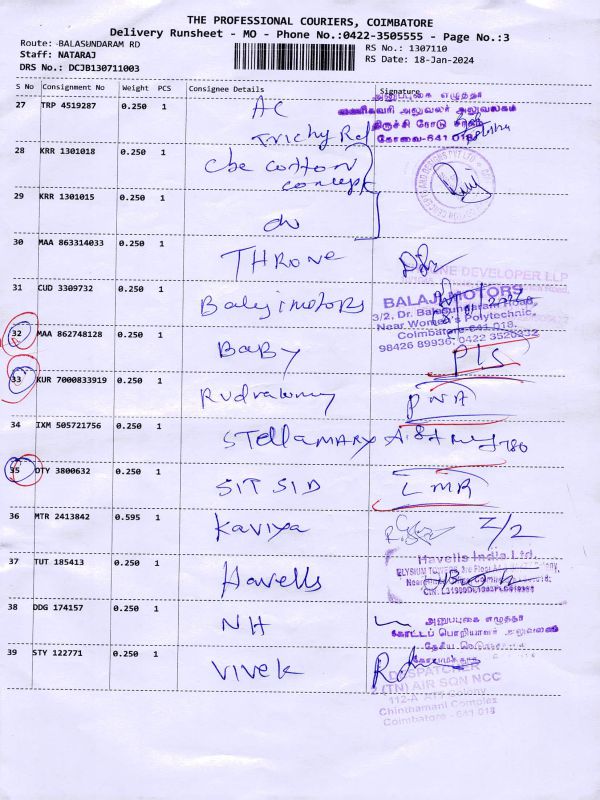 THE PROFESSIONAL COURIERS, COIMBATORE
Delivery Runsheet - MO - Phone No.:0422-3505555 - Page No.:3
Route: BALASUNDARAM RD
RS No.: 1307110
Staff: NATARAJ
RS Date: 18-Jan-2024
DRS No.: DCJB130711003
S No Consignment No Weight PCS Consignee Details Signature
அனுப்புகை எழுத்தர்
27 TRP 4519287 0.250 1 AC
வணிகவரி அலுவலர் அலுவலகம்
திருச்சி ரோடு
Trichy Rd
கோவை-641 018
28 KRR 1301018 0.250 1 cbe cotton
concept
29 KRR 1301015 0.250 1 do
30 MAA 863314033 0.250 1 THRONE
DEVELOPER LLP
31 CUD 3309732 0.250 1 Balaji motors
BALAJI MOTORS
3/2, Dr. Balasundaram Road,
Near Women's Polytechnic,
Coimbatore-641 018.
98426 89936, 0422 3520232
32 MAA 862748128 0.250 1 BABY PLS
33 KUR 7000833919 0.250 1 PNA
34 IXM 505721756 0.250 1 STellaMARY
35 OTY 3800632 0.250 1 SIT SID LMR
36 MTR 2413842 0.595 1 Kaviya 2/2
Havells India Ltd.
37 TUT 185413 0.250 1 Havells
ELYSIUM TOWERS
38 DDG 174157 0.250 1 NH
அனுப்புகை எழுத்தர்
கோட்டப் பொறியாளர் அலுவலகம்
39 STY 122771 0.250 1 VIVEK
DESPATCHER
(TN) AIR SQN NCC
Chinthamani Complex
Coimbatore - 641 018